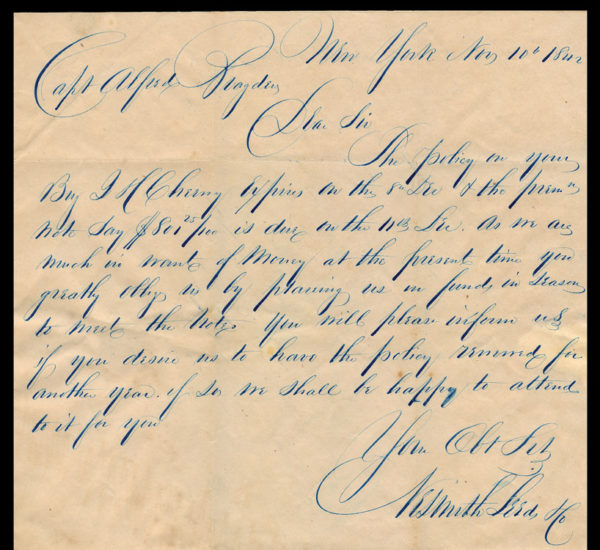 New York Nov 10th 1842
Capt Alfred Blagden
Dear Sir
The policy on your
Brig J H Cheney Expires on the 8th Dec & the prem
note say $801 25/100 is due on the 11th Dec. As we are
much in want of Money at the present time you
greatly oblige us by placing us in funds in season
to meet the Note. You will please inform us
if you desire us to have the policy renewed for
another year. if so we shall be happy to attend
to it for you
Your Obt Svt
Nesmith Leeds & Co